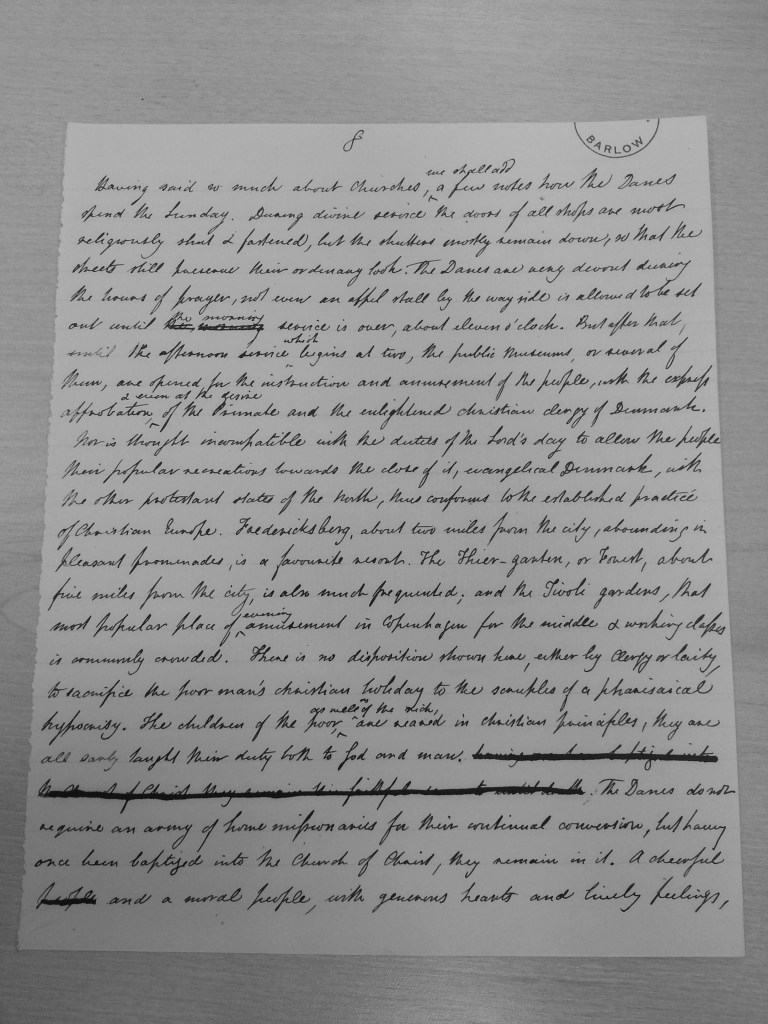 8
BARLOW
we shall add
Having said so much about Churches, a few notes how the Danes
spend the Sunday. During divine service the doors of all shops are most
religiously shut & fastened, but the shutters mostly remain down, so that the
streets still preserve their ordinary look. The Danes are very devout during
the hours of prayer, not even an appel stall by the way side is allowed to be set
the morning
out until service is over, about eleven o'clock. But after that,
which
until the afternoon service begins at two, the public museums, or several of
them, are opened for the instruction and amusement of the people, with the express
& even at the desire
approbation of the Primate and the enlightened christian clergy of Denmark.
Nor is thought incompatible with the duties of the Lord's day to allow the people
their popular recreations towards the close of it, evangelical Denmark, with
the other protestant states of the North, thus conforms to the established practice
of Christian Europe. Fredericksberg, about two miles from the city, abounding in
pleasant promenades, is a favourite resort. The Thier-garten, or Forest, about
five miles from the city, is also much frequented; and the Tivoli gardens, that
evening
most popular place of amusement in Copenhagen for the middle & working classes
is commonly crowded. There is no disposition shown here, either by Clergy or laity,
to sacrifice the poor man's christian holiday to the scruples of a pharisaical
as well as of the rich,
hypocrisy. The children of the poor, are reared in christian principles, they are
all early taught their duty both to God and man. having once been baptized into
the Church of Christ they remain until death. The Danes do not
require an army of home missionaries for their continual conversion, but having
once been baptized into the Church of Christ, they remain in it. A cheerful
people and a moral people, with generous hearts and lively feelings,